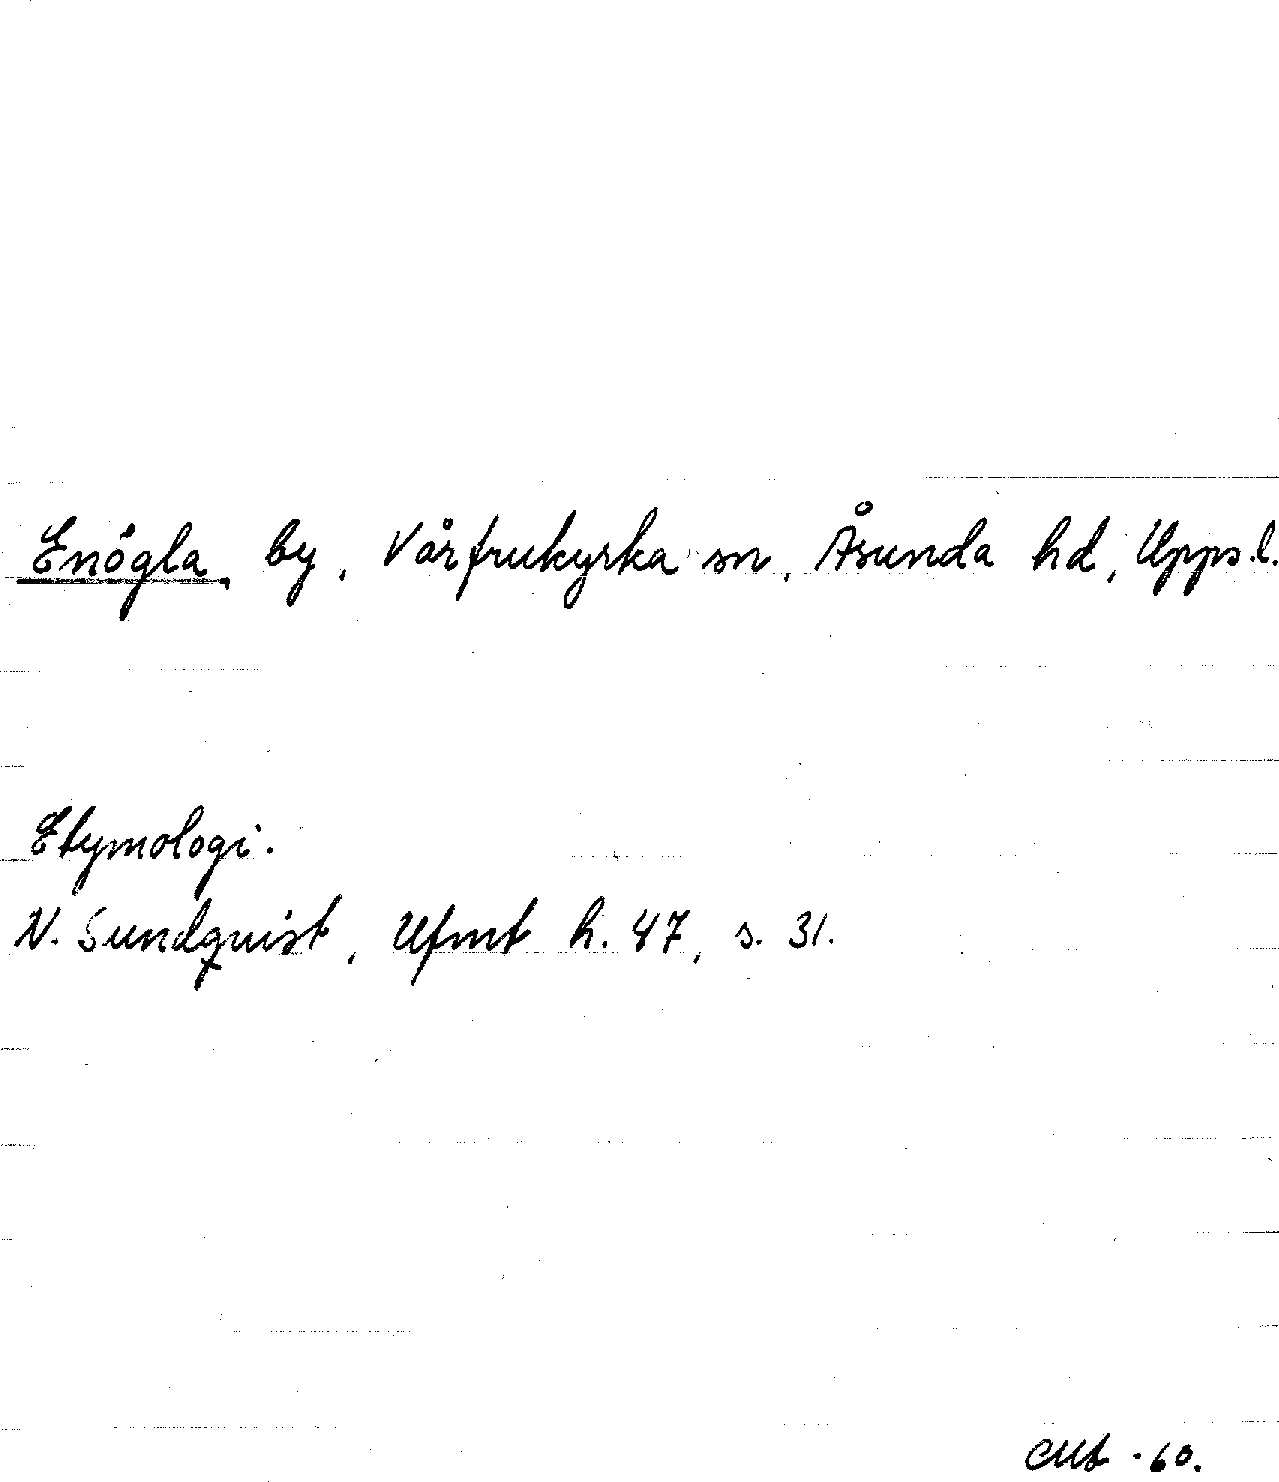 Enögla by, Vårfrukyrka sn, Åsunda hd, Upps.l.
Etymologi.
N. Sundqvist, Ufmt h. 47, s. 31.
-60.